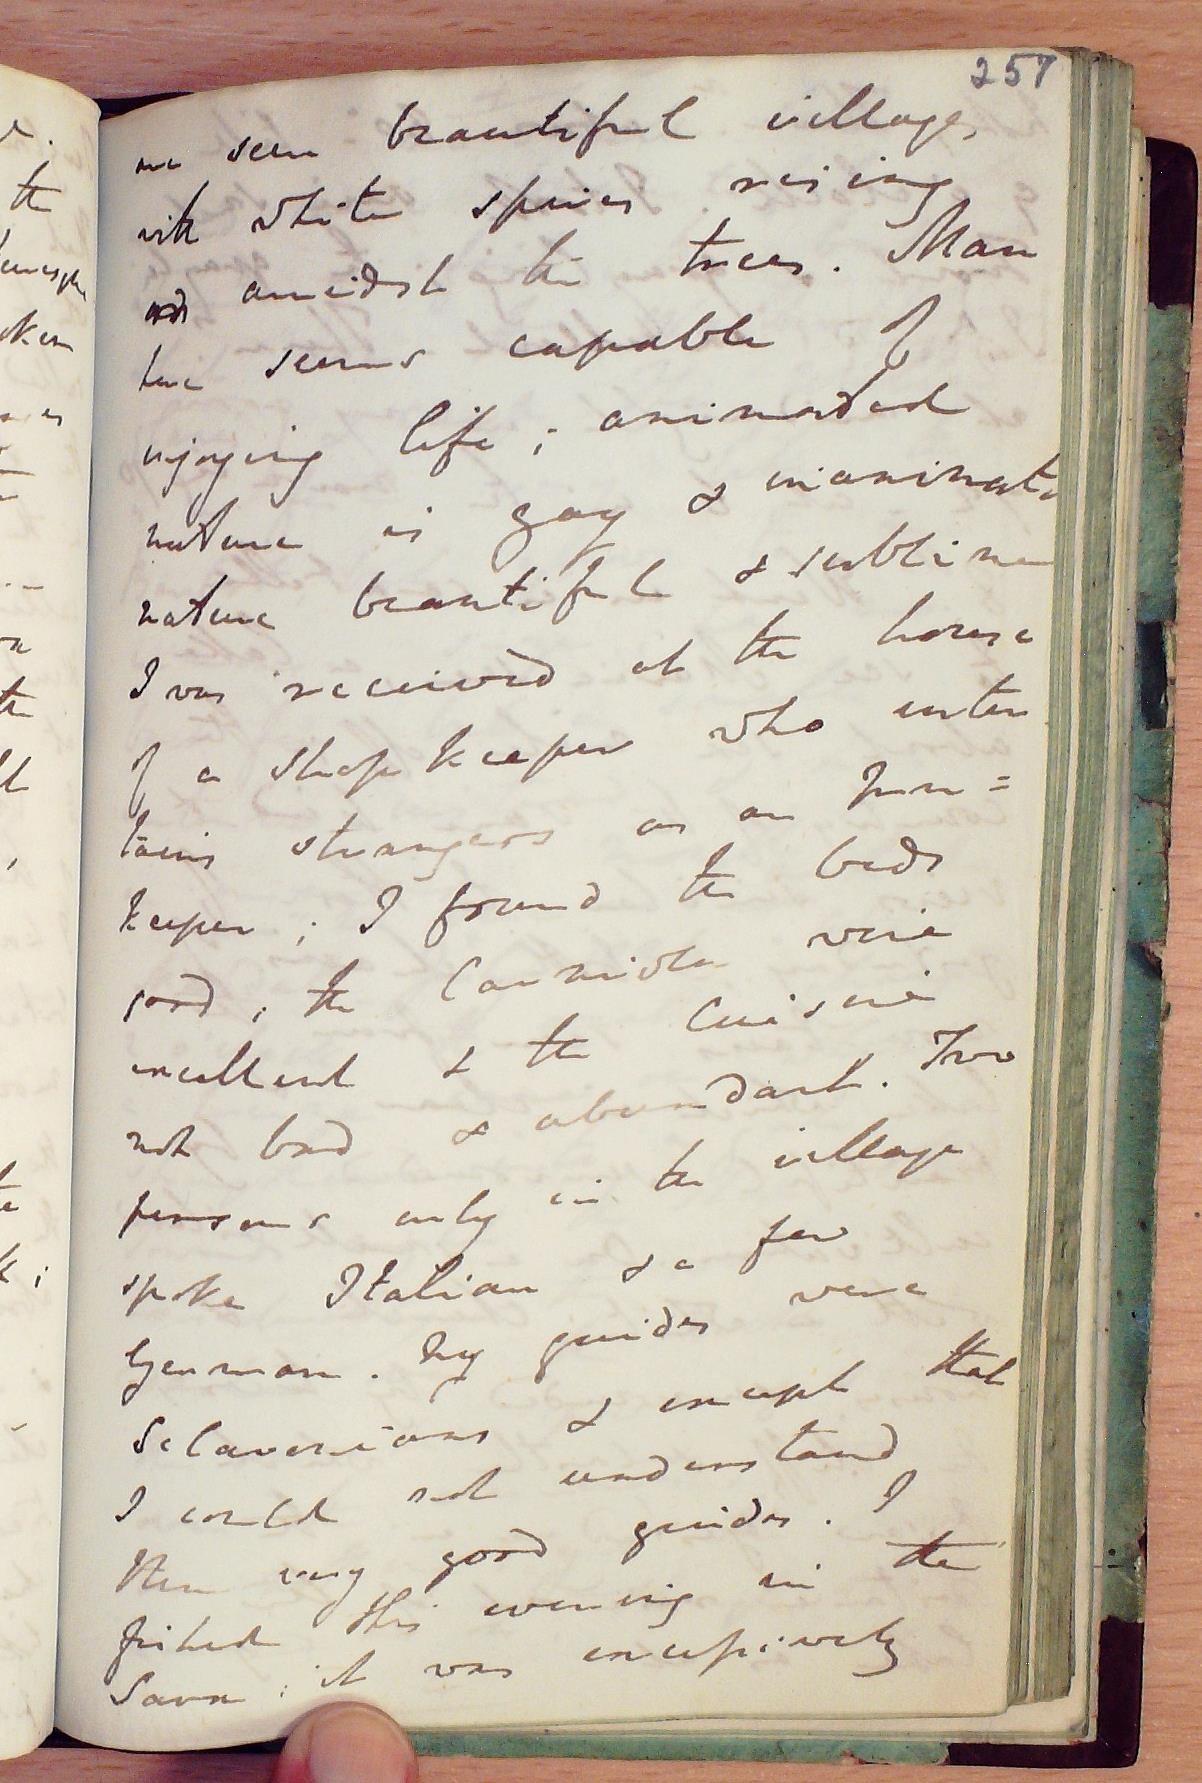 257
are seen beautiful villages
with white spires rising
amidst the trees. Man
here seems capable of
enjoying life; animated
nature is gay & inanimate
nature beautiful & sublime
I was received at the house
of a shopkeeper who enter
tains strangers as an Inn=
keeper; I found the beds
good; the wine
excellent & the Cuisine
not bad & abundant. Two
persons only in the village
spoke Italian & a few
German. My guides were
Sclavonians & except that
I could not understand
them very good guides. I
fished this evening in the
Sava; it was excessively